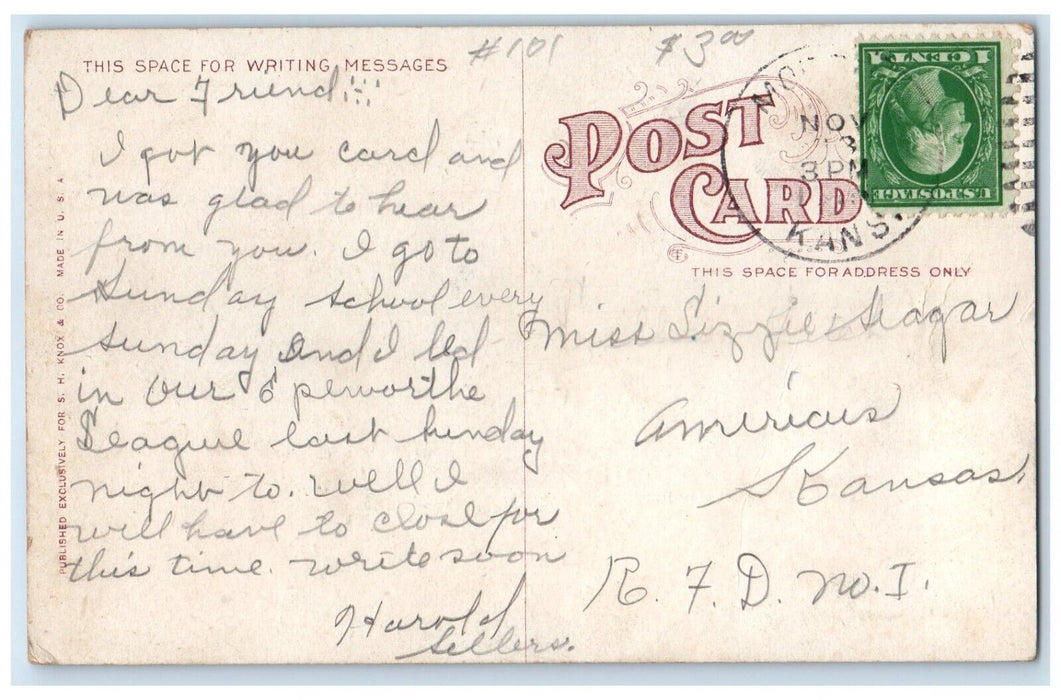 #101 $3.00
THIS SPACE FOR WRITING MESSAGES
Dear Friend:::
I got you card and
was glad to hear
from you. I go to
Sunday school every
Sunday and I led
in our Epeworthe
League last Sunday
night to. Well I
will have to close for
this time. write soon
Harold
Sellers.
PUBLISHED EXCLUSIVELY FOR S. H. KNOX & CO. MADE IN U. S. A
POST
CARD
THIS SPACE FOR ADDRESS ONLY
NOV
3 PM
KANS.
1 CENT 1
U.S. POSTAGE
Miss Lizzie Hagar
Americus
Kansas,
R. F. D. No. I.